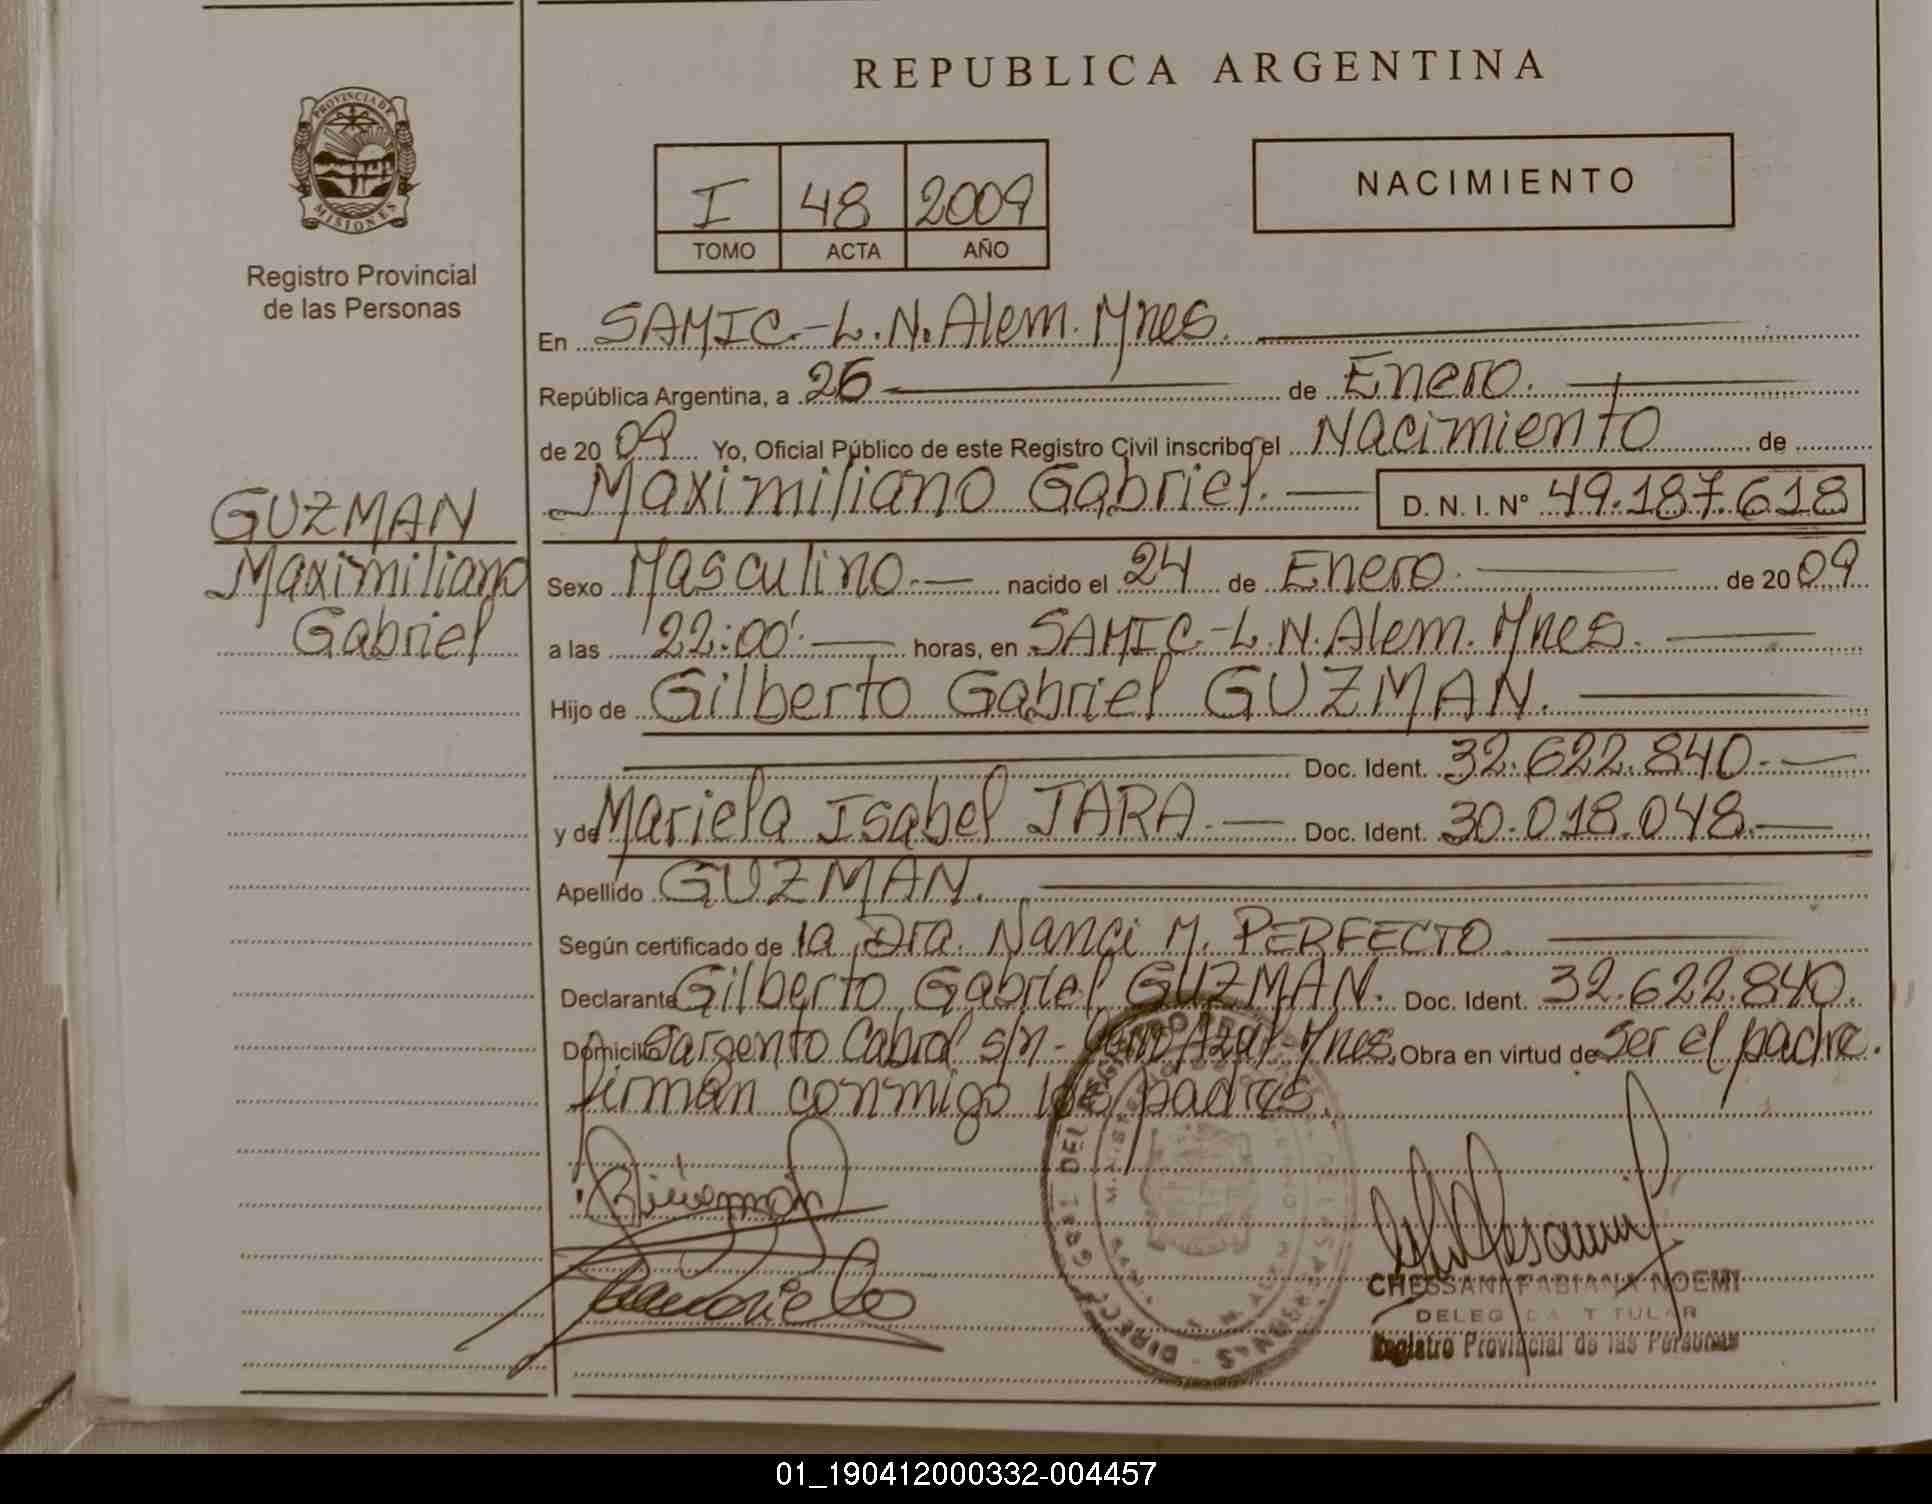 REPUBLICA ARGENTINA
PROVINCIA DE
MISIONES
Registro Provincial
de las Personas
I 48 2009
TOMO ACTA AÑO
NACIMIENTO
En SAMIC.-L.N.Alem.Mnes.
República Argentina, a 26 de Enero.
de 2009 Yo, Oficial Público de este Registro Civil inscribo el Nacimiento de
Maximiliano Gabriel. D. N. I. Nº 49.187.618
GUZMAN
Maximiliano
Gabriel
Sexo Masculino.- nacido el 24 de Enero. de 2009
a las 22:00'. horas, en SAMIC.-L.N.Alem.Mnes.
Hijo de Gilberto Gabriel GUZMAN.
Doc. Ident. 32.622.840.-
y de Mariela Isabel JARA.- Doc. Ident. 30.018.048.-
Apellido GUZMAN.
Según certificado de la Dra. Nanci M. PERFECTO
Declarante Gilberto Gabriel GUZMAN. Doc. Ident. 32.622.840.
Domicilio Sargento Cabral s/n - Cerro Azul-Mnes. Obra en virtud de ser el padre.
firman conmigo los padres.
CHESSANI FABIANA NOEMI
DELEGADA TITULAR
Registro Provincial de las Personas
01_190412000332-004457